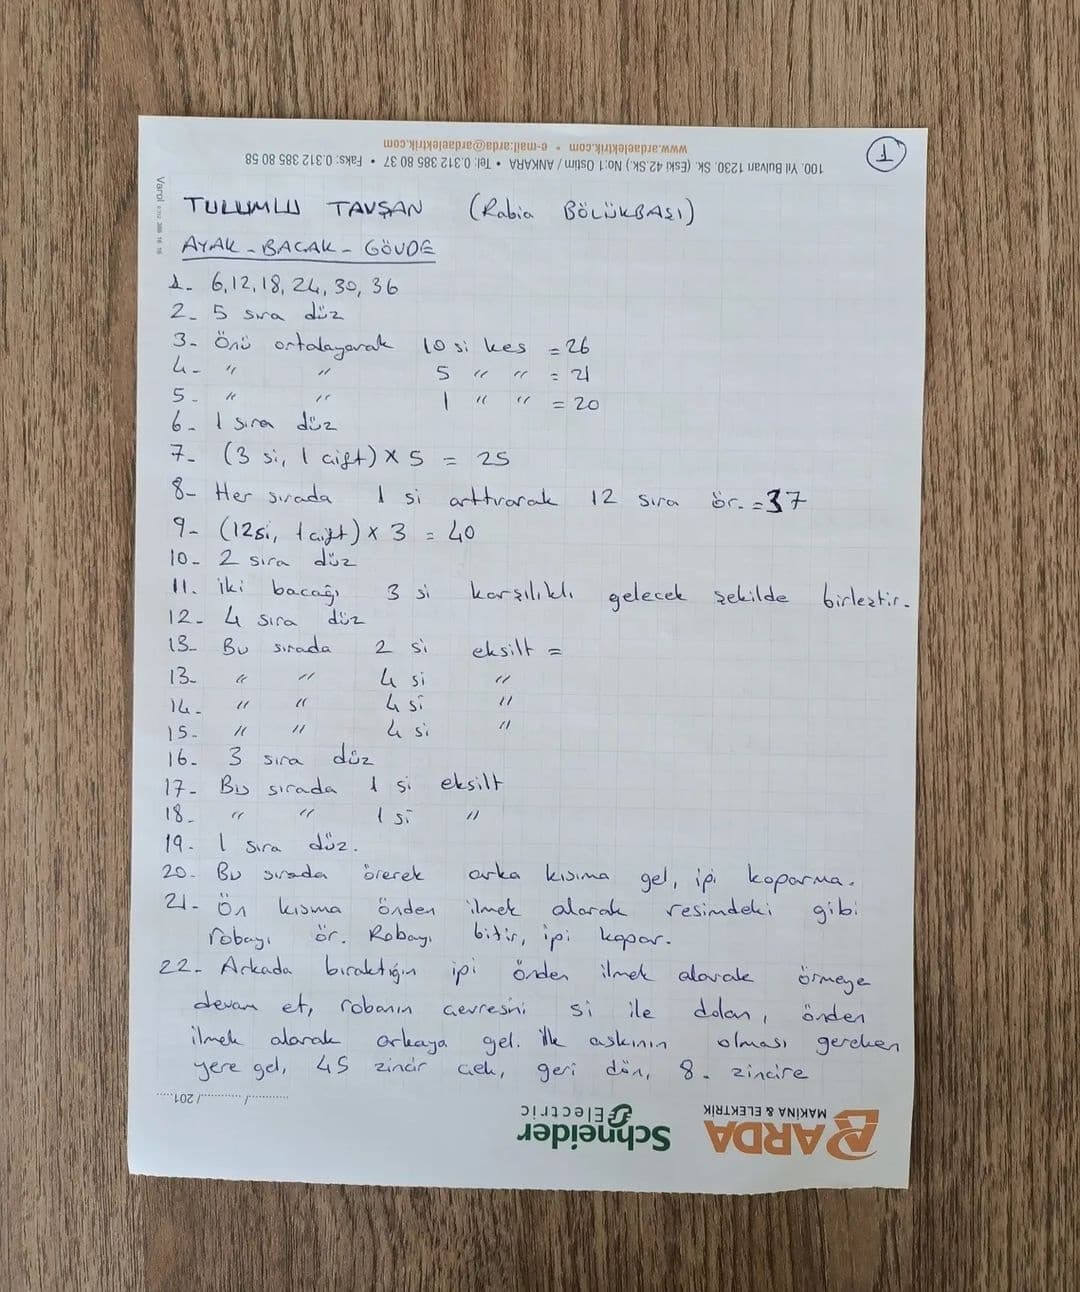 1
100. Yıl Bulvarı 1230. Sk. (Eski 42.Sk.) No:1 Ostim / ANKARA • Tel: 0.312 385 80 37 • Faks: 0.312 385 80 58
www.ardaelektrik.com • e-mail:arda@ardaelektrik.com
TULUMLU TAVŞAN (Rabia BÖLÜKBAŞI)
AYAK - BACAK - GÖVDE
1- 6,12,18,24,30,36
2- 5 sıra düz
3- Önü ortalayarak 10 si kes = 26
4- " " 5 " " = 21
5- " " 1 " " = 20
6- 1 sıra düz
7- (3 si, 1 çift) x 5 = 25
8- Her sırada 1 si arttırarak 12 sıra ör. = 37
9- (12si, 1 çift) x 3 = 40
10- 2 sıra düz
11. iki bacağı 3 si karşılıklı gelecek şekilde birleştir.
12- 4 sıra düz
13- Bu sırada 2 si eksilt =
13- " " 4 si "
14- " " 4 si "
15- " " 4 si "
16- 3 sıra düz
17- Bu sırada 1 si eksilt
18- " " 1 si "
19- 1 sıra düz.
20- Bu sırada örerek arka kısıma gel, ipi koparma.
21- Ön kısma önden ilmek alarak resimdeki gibi
robayı ör. Robayı bitir, ipi kopar.
22- Arkada bıraktığın ipi önden ilmek alarak örmeye
devam et, robanın çevresini si ile dolan, önden
ilmek alarak arkaya gel. ilk askının olması gereken
yere gel, 45 zincir çek, geri dön, 8. zincire
........../........../201.....
ARDA
MAKİNA & ELEKTRİK
Schneider
Electric